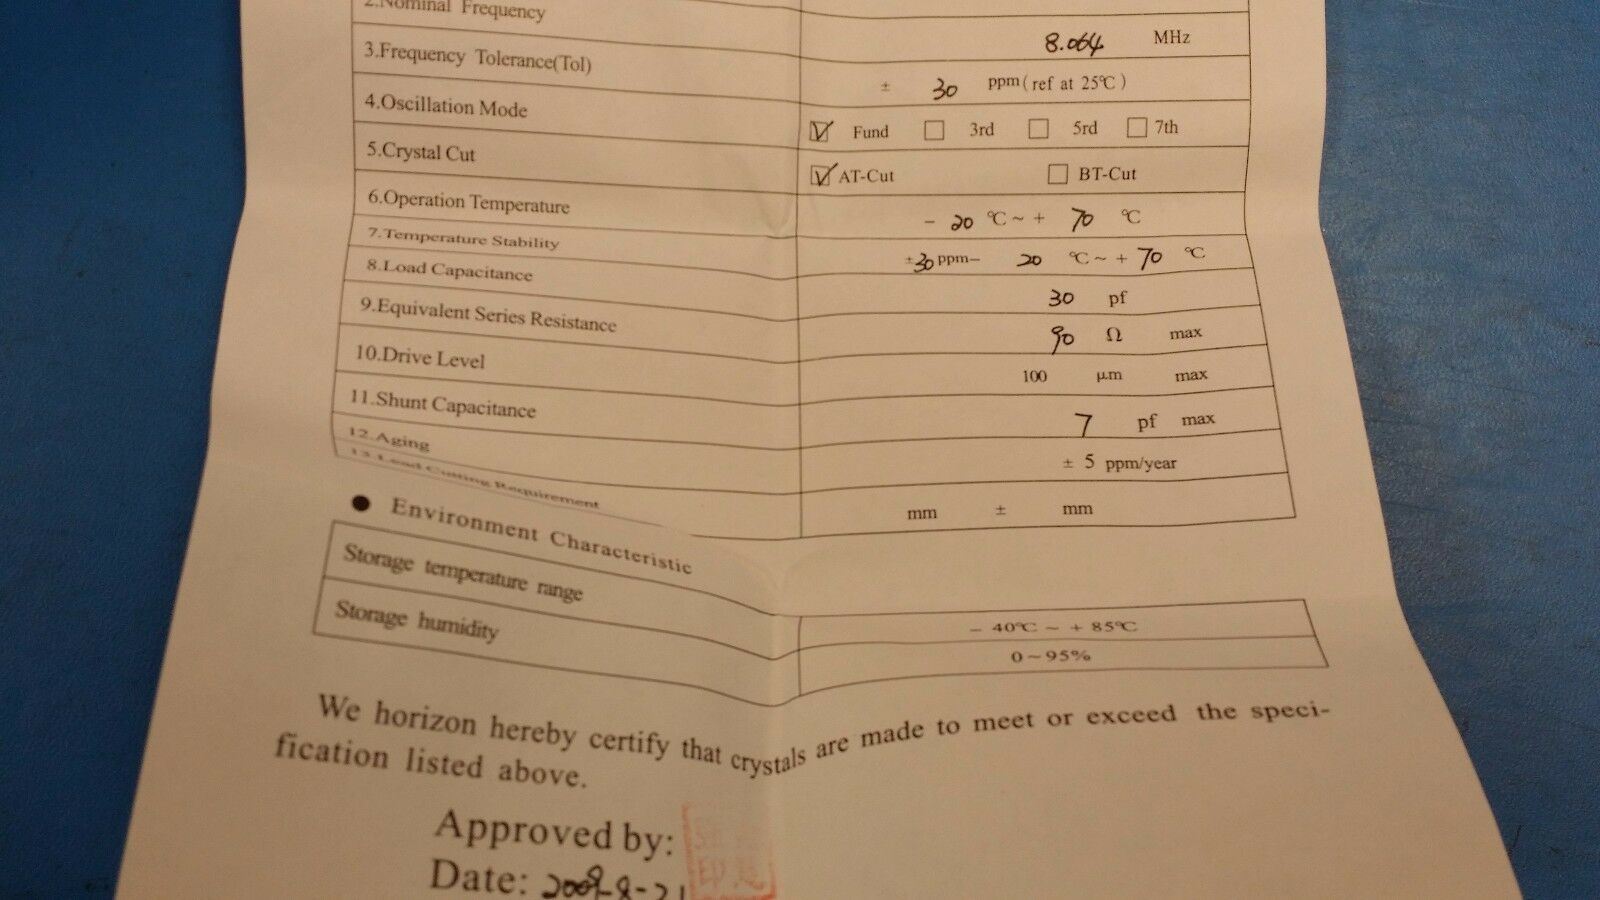 2.Nominal Frequency 8.064 MHz
3.Frequency Tolerance(Tol) ± 30 ppm(ref at 25℃)
4.Oscillation Mode Fund 3rd 5rd 7th
5.Crystal Cut AT-Cut BT-Cut
6.Operation Temperature - 20 ℃~+ 70 ℃
7.Temperature Stability ±30ppm- 20 ℃~+70 ℃
8.Load Capacitance 30 pf
9.Equivalent Series Resistance 90 Ω max
10.Drive Level 100 μm max
11.Shunt Capacitance 7 pf max
12.Aging ± 5 ppm/year
13.Lead Cutting Requirement mm ± mm
● Environment Characteristic
Storage temperature range - 40℃ ~ + 85℃
Storage humidity 0~95%
We horizon hereby certify that crystals are made to meet or exceed the speci-
fication listed above.
Approved by:
Date: